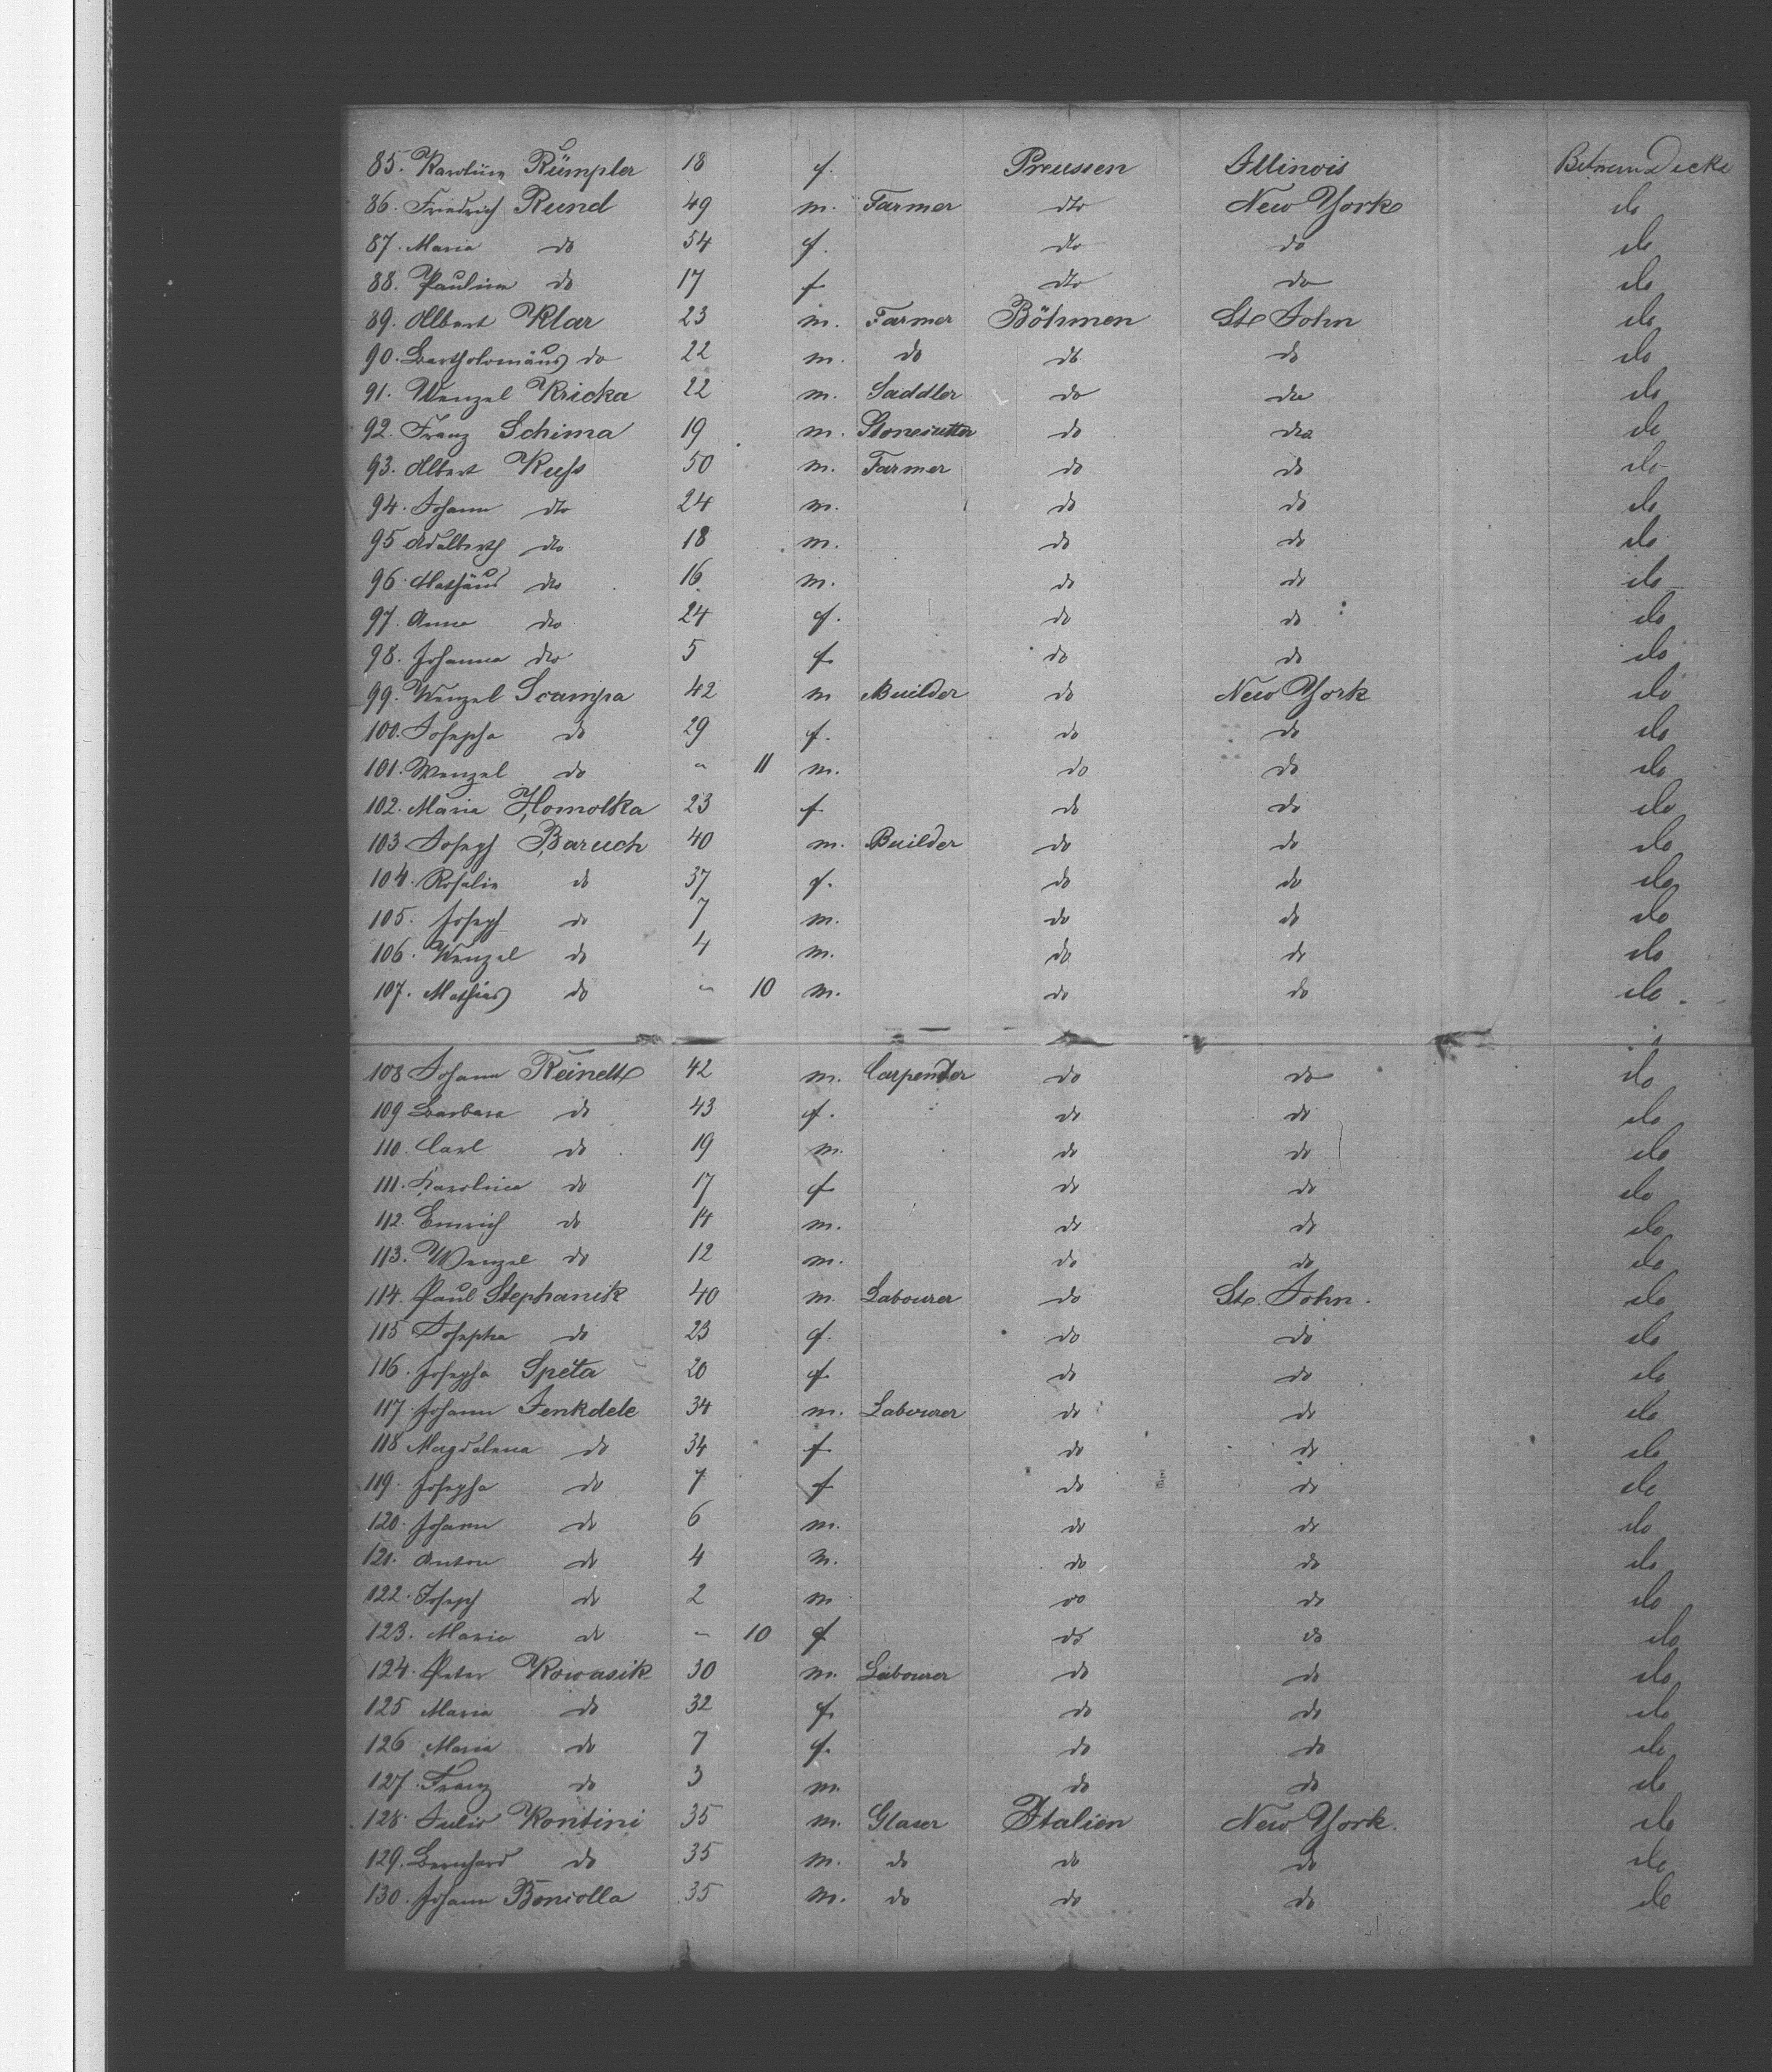 85. Karoline Rümpler 18 f. Preussen Illinois
86. Friedrich Rund 49 m. Farmer dto New York do
87. Maria do 54 f. dto do do
88. Pauline do 17 f dto do do
89. Albert Klar 23 m. Farmer Böhmen St John do
90. Bartholomäus do 22 m. do do do do
91. Wenzel Kricka 22 m. Saddler do do do
92. Franz Schima 19 m. Stonecutter do do do
93. Albert Kuss 50 m. Farmer do do do
94. Johann dto 24 m. do do do
95 Adalberth dto 18 m. do do do
96. Mathäus dto 16 m. do do do
97. Anna dto 24 f. do do do
98. Johanna dto 5 f. do do do
99. Wenzel Scampa 42 m Builder do New York do
100. Josepha do 29 f. do do do
101. Wenzel do " 11 m. do do do
102. Maria Homolka 23 f do do do
103 Joseph Baruch 40 m. Builder do do do
104. Rosalie do 37 f. do do do
105. Joseph do 7 m. do do do
106. Wenzel do 4 m. do do do
107. Mathias do " 10 m. do do do
108 Johann Reinelt 42 m. Carpender do do do
109 Barbara do 43 f. do do do
110. Carl do 19 m. do do do
111. Karolina do 17 f do do do
112. Emrich do 14 m. do do do
113. Wenzel do 12 m. do do do
114. Paul Stephanik 40 m. Labourer do St. John. do
115 Josepha do 23 f. do do do
116. Josepha Speta 20 f do do do
117. Johann Jenkdele 34 m. Labourer do do do
118 Magdalena do 34 f do do do
119. Josepha do 7 f do do do
120. Johann do 6 m. do do do
121. Anton do 4 m. do do do
122. Joseph do 2 m do do do
123. Maria do " 10 f do do do
124. Peter Kowasik 30 m. Labourer do do do
125 Maria do 32 f. do do do
126 Maria do 7 f. do do do
127. Franz do 3 m. do do do
128. Julio Kontini 35 m. Glaser Italien New York. do
129. Bernhard do 35 m. do do do do
130. Johann Boniolla 35 m. do do do do